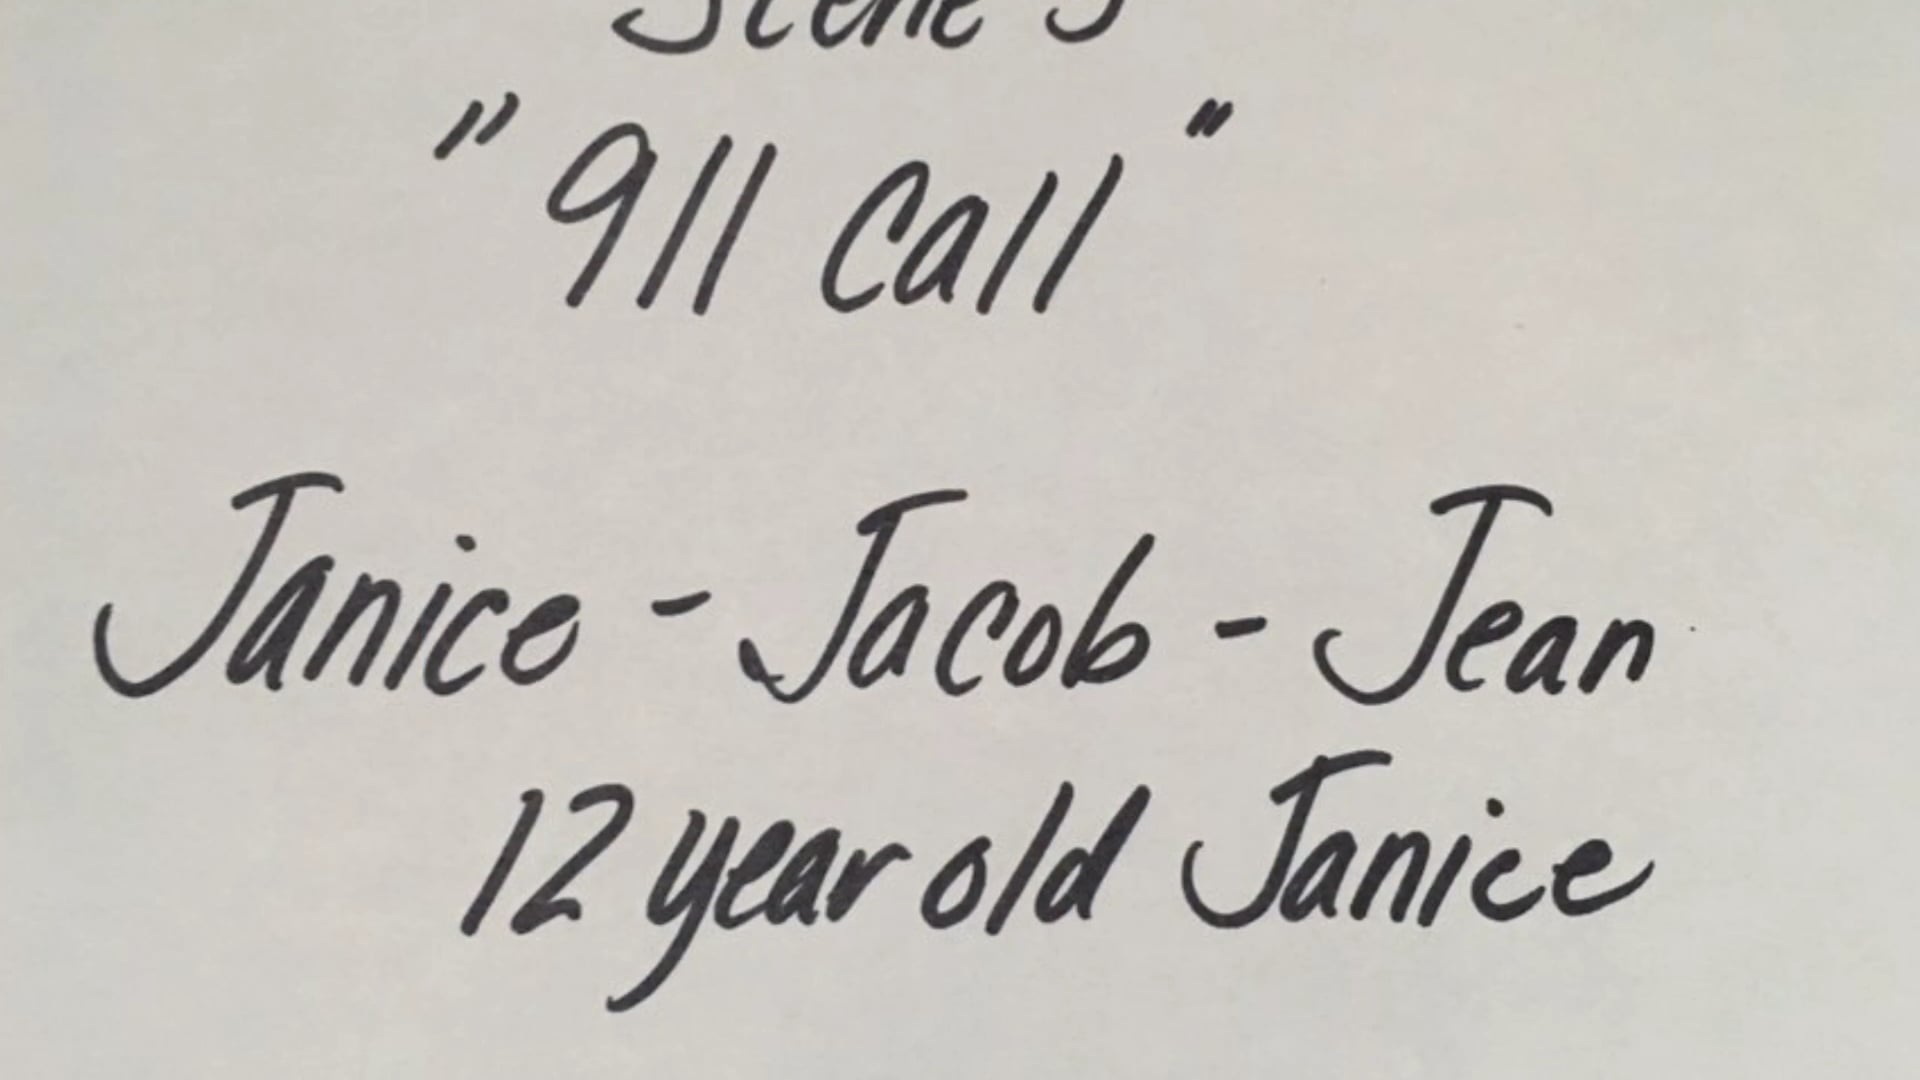 Scene
"911 Call"
Janice - Jacob - Jean
12 year old Janice